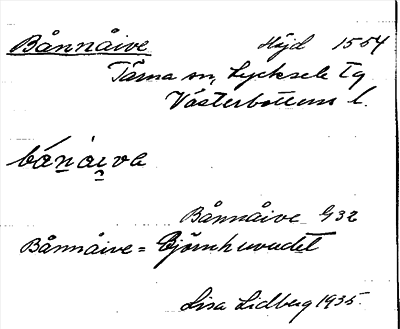 Bånnåive Höjd 1554
Tärna sn, Lycksele tg
Västerbottens l.
bánaiva
Bånnåive G32
Bånnåive = Björnhuvudet
Lisa Lidberg 1935.